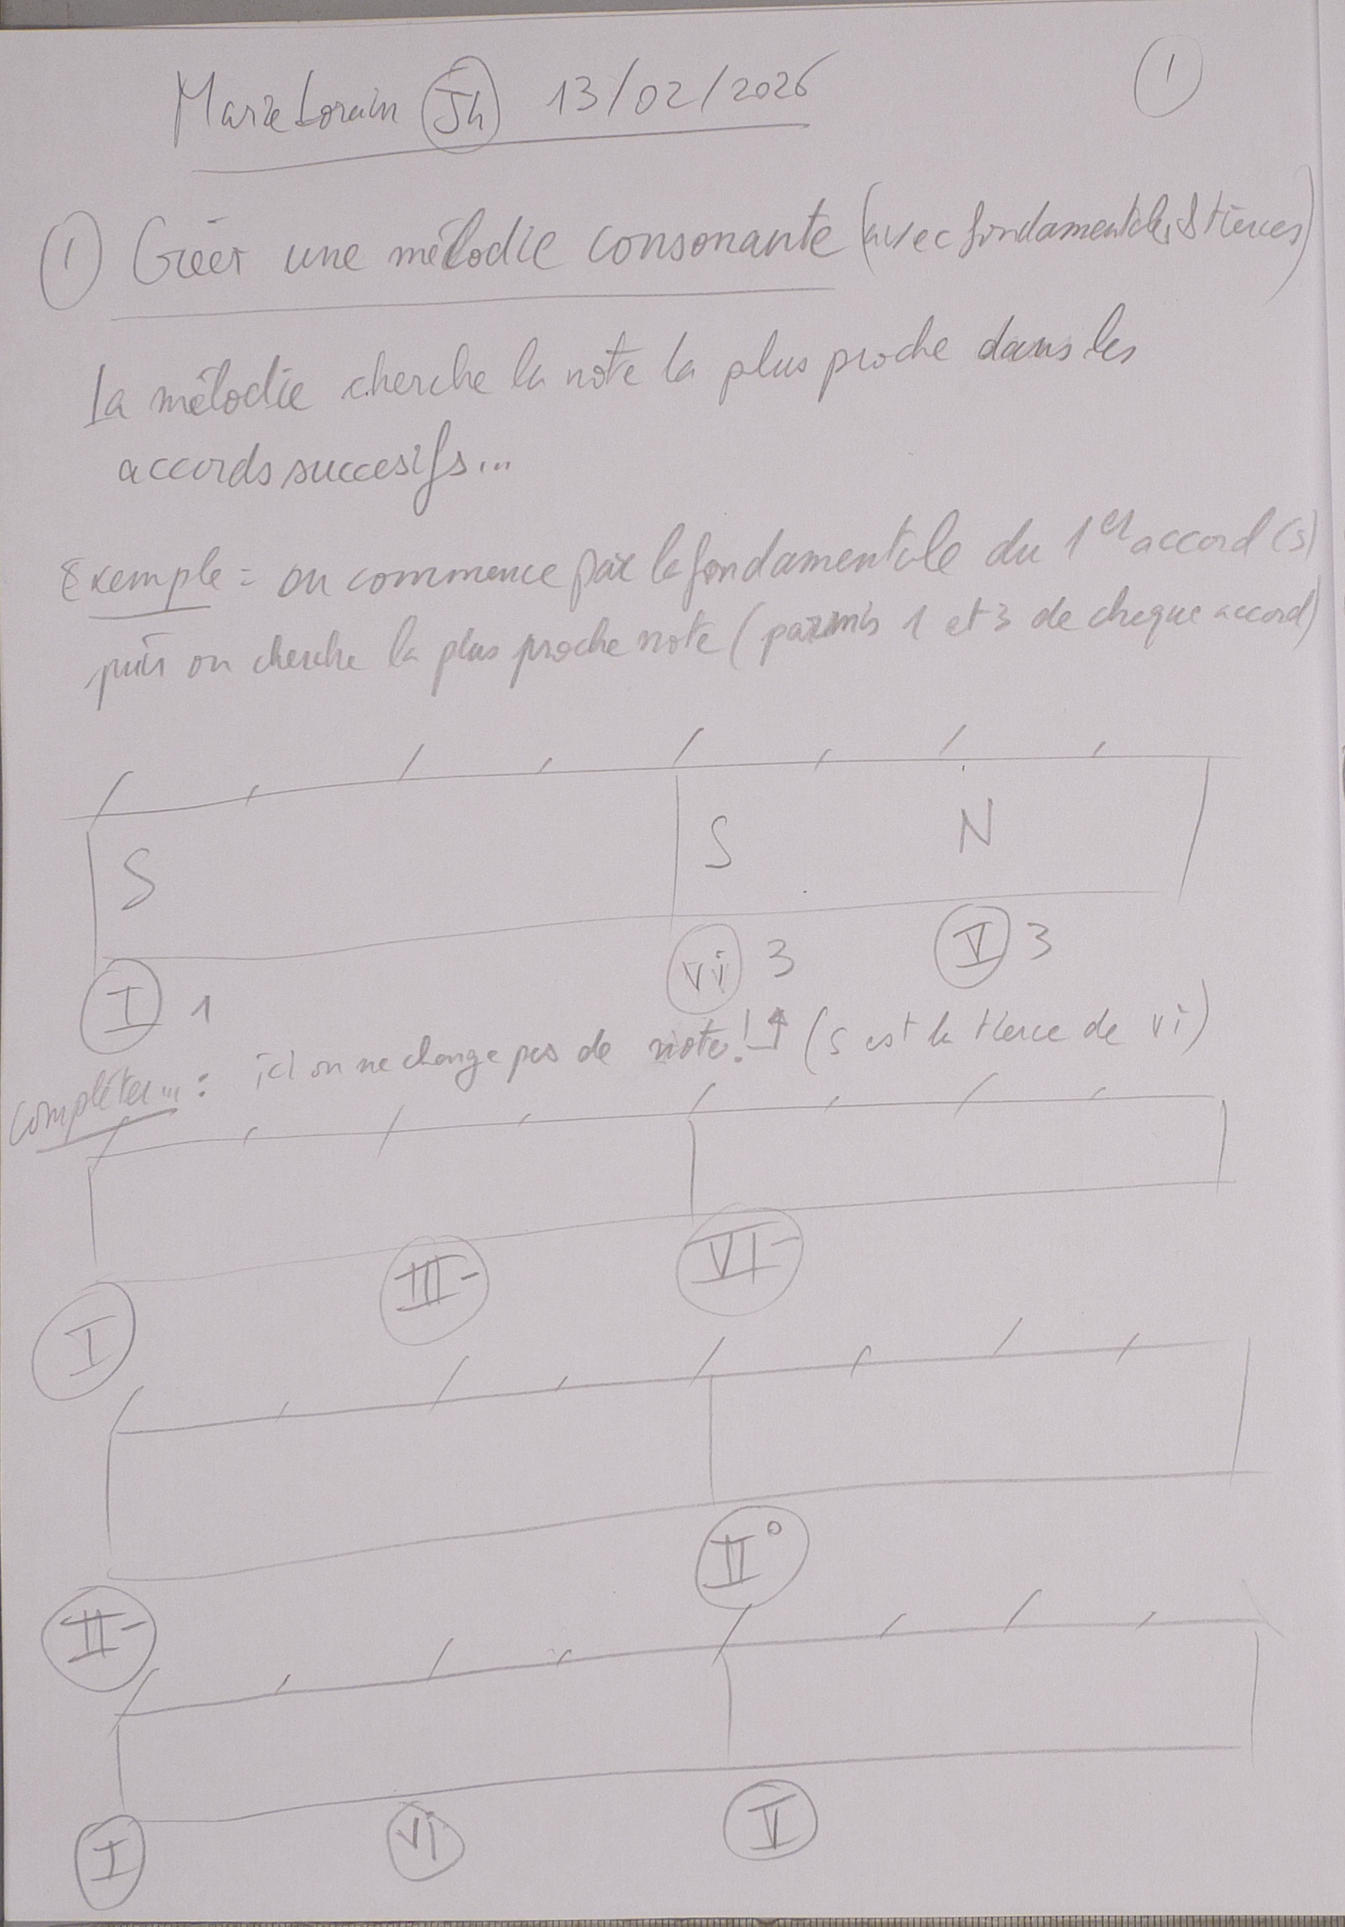 Marie Lorain Jh 13/02/2026 1
1 Créer une mélodie consonante (avec fondamentales & tierces)
La mélodie cherche la note la plus proche dans les
accords succesifs...
Exemple = on commence par la fondamentale du 1er accord (s)
puis on cherche la plus proche note (parmis 1 et 3 de chaque accord)
S S N
I 1 vi 3 V 3
Compléter... : ici on ne change pas de note! ↑ (S est la tierce de vi)
I III- VI-
II- II°
I vi V